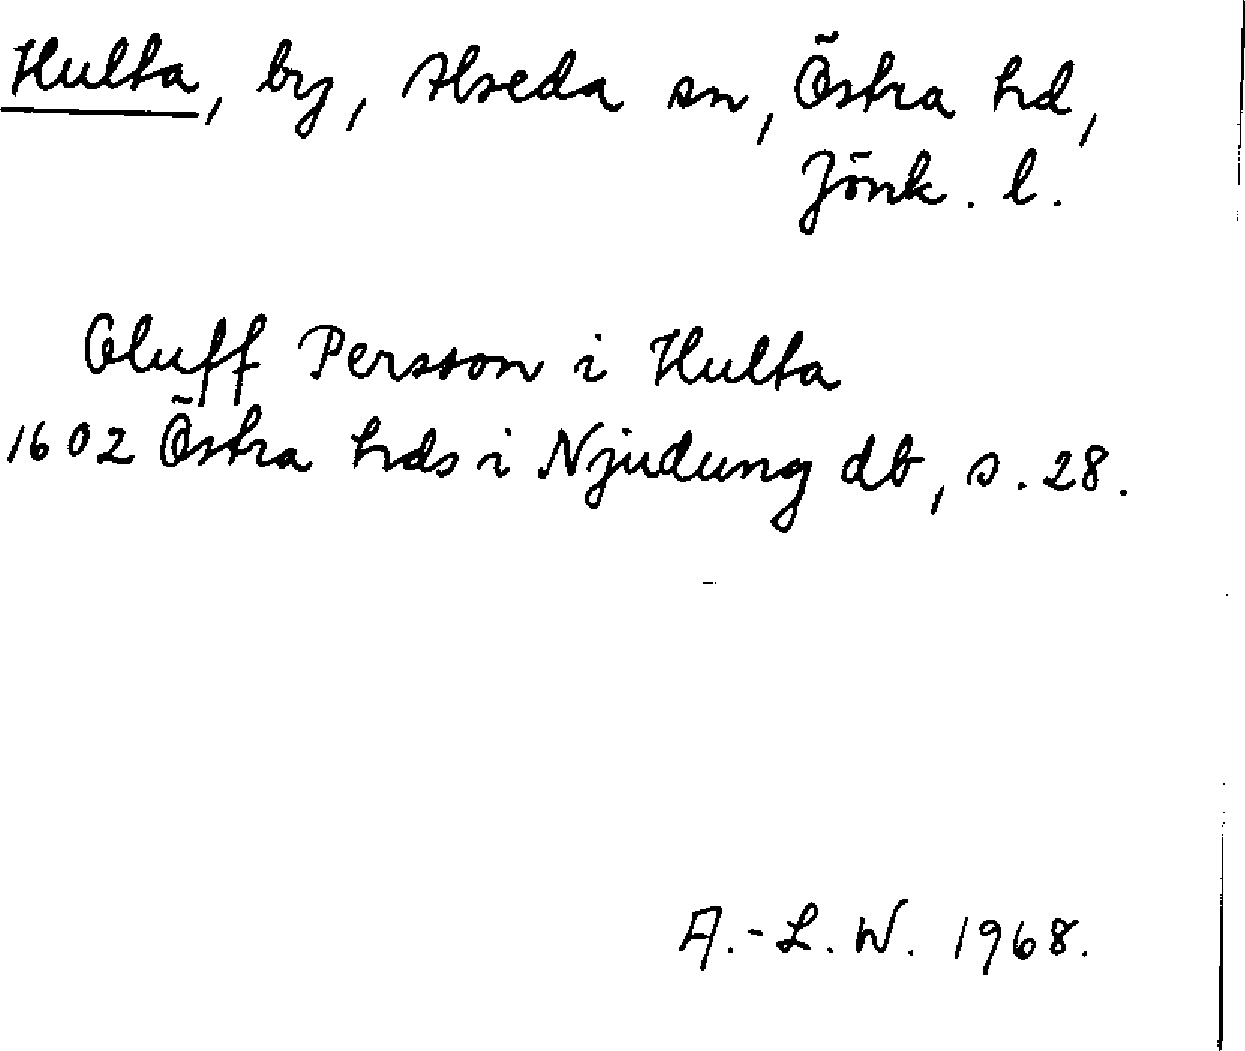 Hulta, by, Alseda sn, Östra hd,
Jönk. l.
Oluff Persson i Hulta
1602 Östra hds i Njudung db, s. 28.
A.-L. W. 1968.